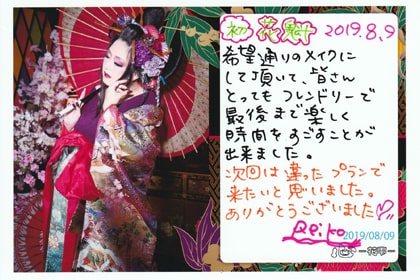 初 花魁 2019.8.9
希望通りのメイクに
して頂いて、皆さん
とってもフレンドリーで
最後まで楽しく
時間をすごすことが
出来ました。
次回は違ったプランで
来たいと思いました。
ありがとうございました!!
Reiko
2019/08/09